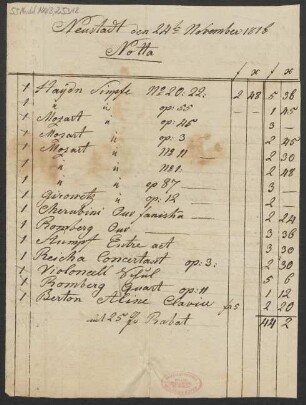 Neustadt den 24t November 1816
Notta
f x f x
1 Haydn Simpfo No 20: 22: 2 48 5 36
1 " " op: 55 — 1 45
1 Mozart " op: 45 3 —
1 Mozart " op: 3 2 45
1 Mozart " No 11 — 2 30
1 " " No 1: 2 48
1 " " op 87 — 3 —
1 Girowetz " op: 12 2 —
1 Cherubini Ouv Faniska — 2 24
1 Romberg Ouv — 3 36
1 Entre act 3 30
1 Reicha Concertant op: 3: 2 30
1 Violoncell Schul 5 6
1 Romberg Quart op: 11 1 12
1 Berton Aline Clavier 2 20
mit 25 Rabat 44 2